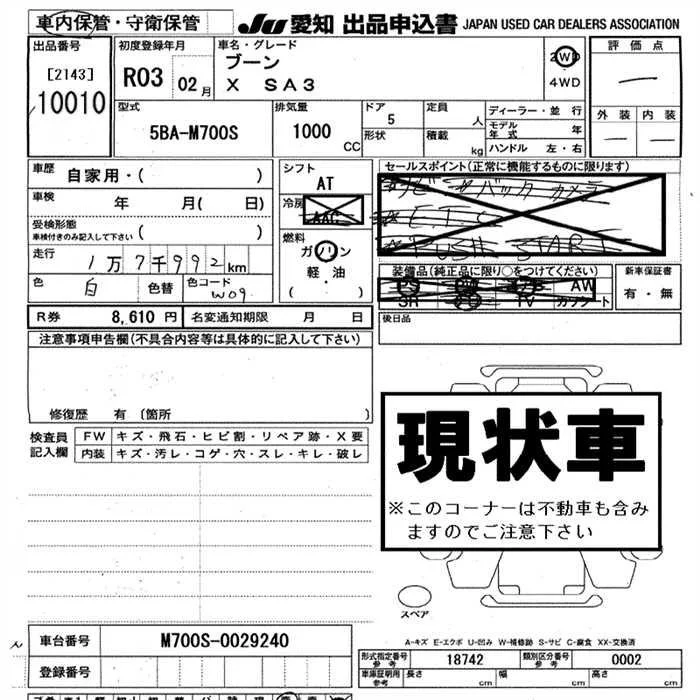 車内保管・守衛保管
JU 愛知 出品申込書 JAPAN USED CAR DEALERS ASSOCIATION
出品番号
[2143]
10010
初度登録年月
R03 02月
車名・グレード
ブーン
X SA3
2WD
4WD
評価点
—
外装 内装
— —
型式
5BA-M700S
排気量
1000 CC
ドア
5
形状
定員
人
積載
kg
ディーラー・並行
モデル年式 年
ハンドル 左・右
車歴 自家用・( )
車検 年 月( 日)
受検形態
車検付きのみ記入して下さい ( )
走行 1万7千992km
色 白 色替 色コード W09
シフト
AT
冷房
AAC
燃料
ガソリン
軽・油
( )
セールスポイント(正常に機能するものに限ります)
ナビ バックカメラ
ETC
PUSH START
装備品(純正品に限り○をつけてください)
PS PW AW
SR TV カセット
新車保証書
有・無
R券 8,610円 名変通知期限 月 日
後日品
注意事項申告欄(不具合内容等は具体的に記入して下さい)
修復歴 有 〔箇所 〕
検査員記入欄
FW キズ・飛石・ヒビ割・リペア跡・X要
内装 キズ・汚レ・コゲ・穴・スレ・キレ・破レ
現状車
※このコーナーは不動車も含み
ますのでご注意下さい
スペア
A-キズ E-エクボ U-凹み W-補修跡 S-サビ C-腐食 XX-交換済
車台番号 M700S-0029240
登録番号
型式指定番号 参考 18742 類別区分番号 参考 0002
車庫証明用 参考 長さ 幅 高さ